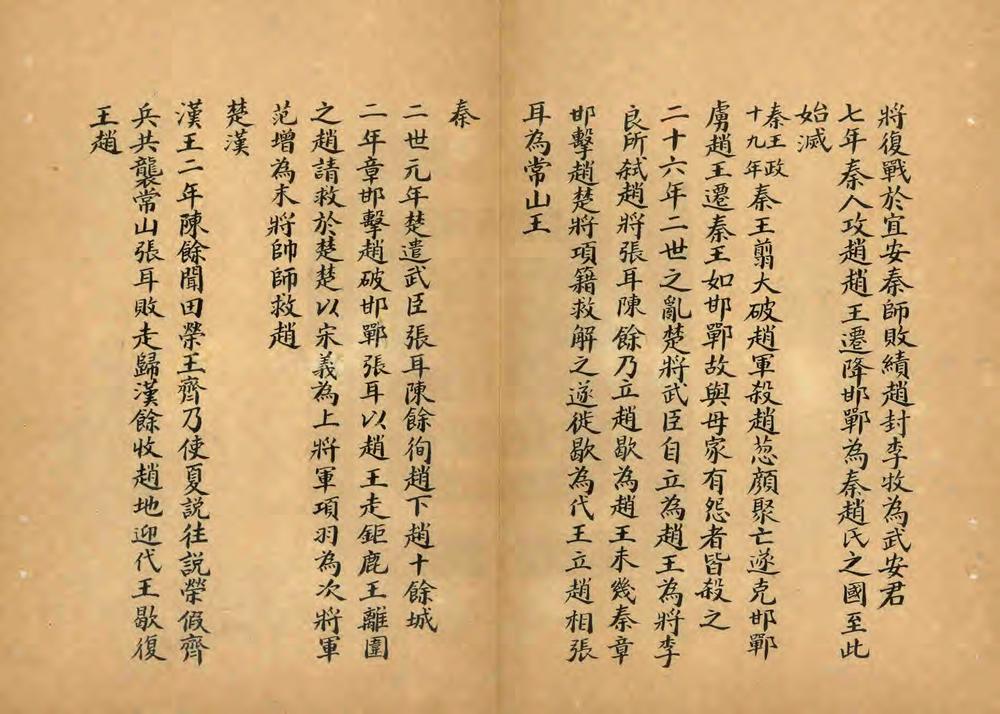 將復戰於宜安秦師敗績趙封李牧為武安君
七年秦人攻趙趙王遷降邯鄲為秦趙氏之國至此
始滅
秦王政十九年秦王翦大破趙軍殺趙怱顔聚亡遂克邯鄲
虜趙王遷秦王如邯鄲故與母家有怨者皆殺之
二十六年二世之亂楚將武臣自立為趙王為將李
良所弒趙將張耳陳餘乃立趙歇為趙王未幾秦章
邯擊趙楚將項籍救解之遂徙歇為代王立趙相張
耳為常山王
秦
二世元年楚遣武臣張耳陳餘徇趙下趙十餘城
二年章邯擊趙破邯鄲張耳以趙王走鉅鹿王離圍
之趙請救於楚楚以宋義為上將軍項羽為次將軍
范增為末將帥師救趙
楚漢
漢王二年陳餘聞田榮王齊乃使夏説往説榮假齊
兵共襲常山張耳敗走歸漢餘收趙地迎代王歇復
王趙